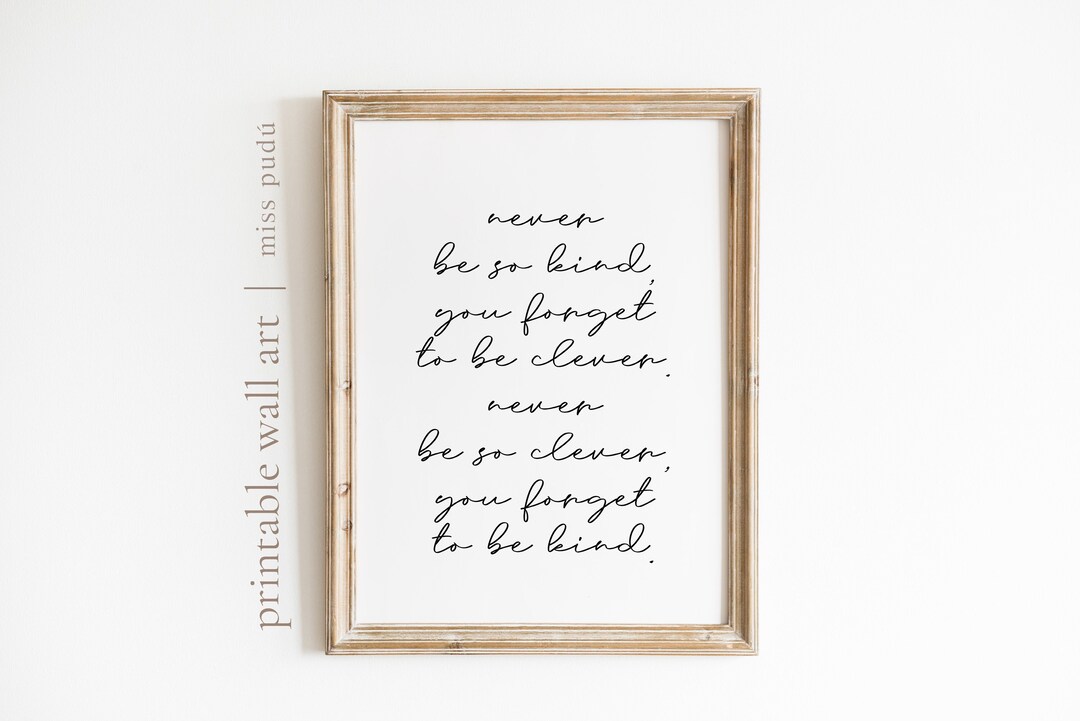 never
be so kind,
you forget
to be clever.
never
be so clever,
you forget
to be kind.
printable wall art | miss pudú